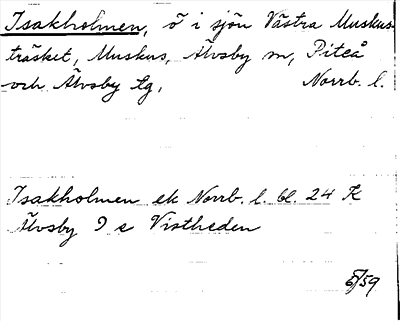 Isakholmen, ö i sjön Västra Muskus-
träsket, Muskus, Älvsby sn, Piteå
och Älvsby tg, Norrb. l.
Isakholmen ek Norrb. l. bl. 24 K
Älvsby 9 e Vistheden
5/59